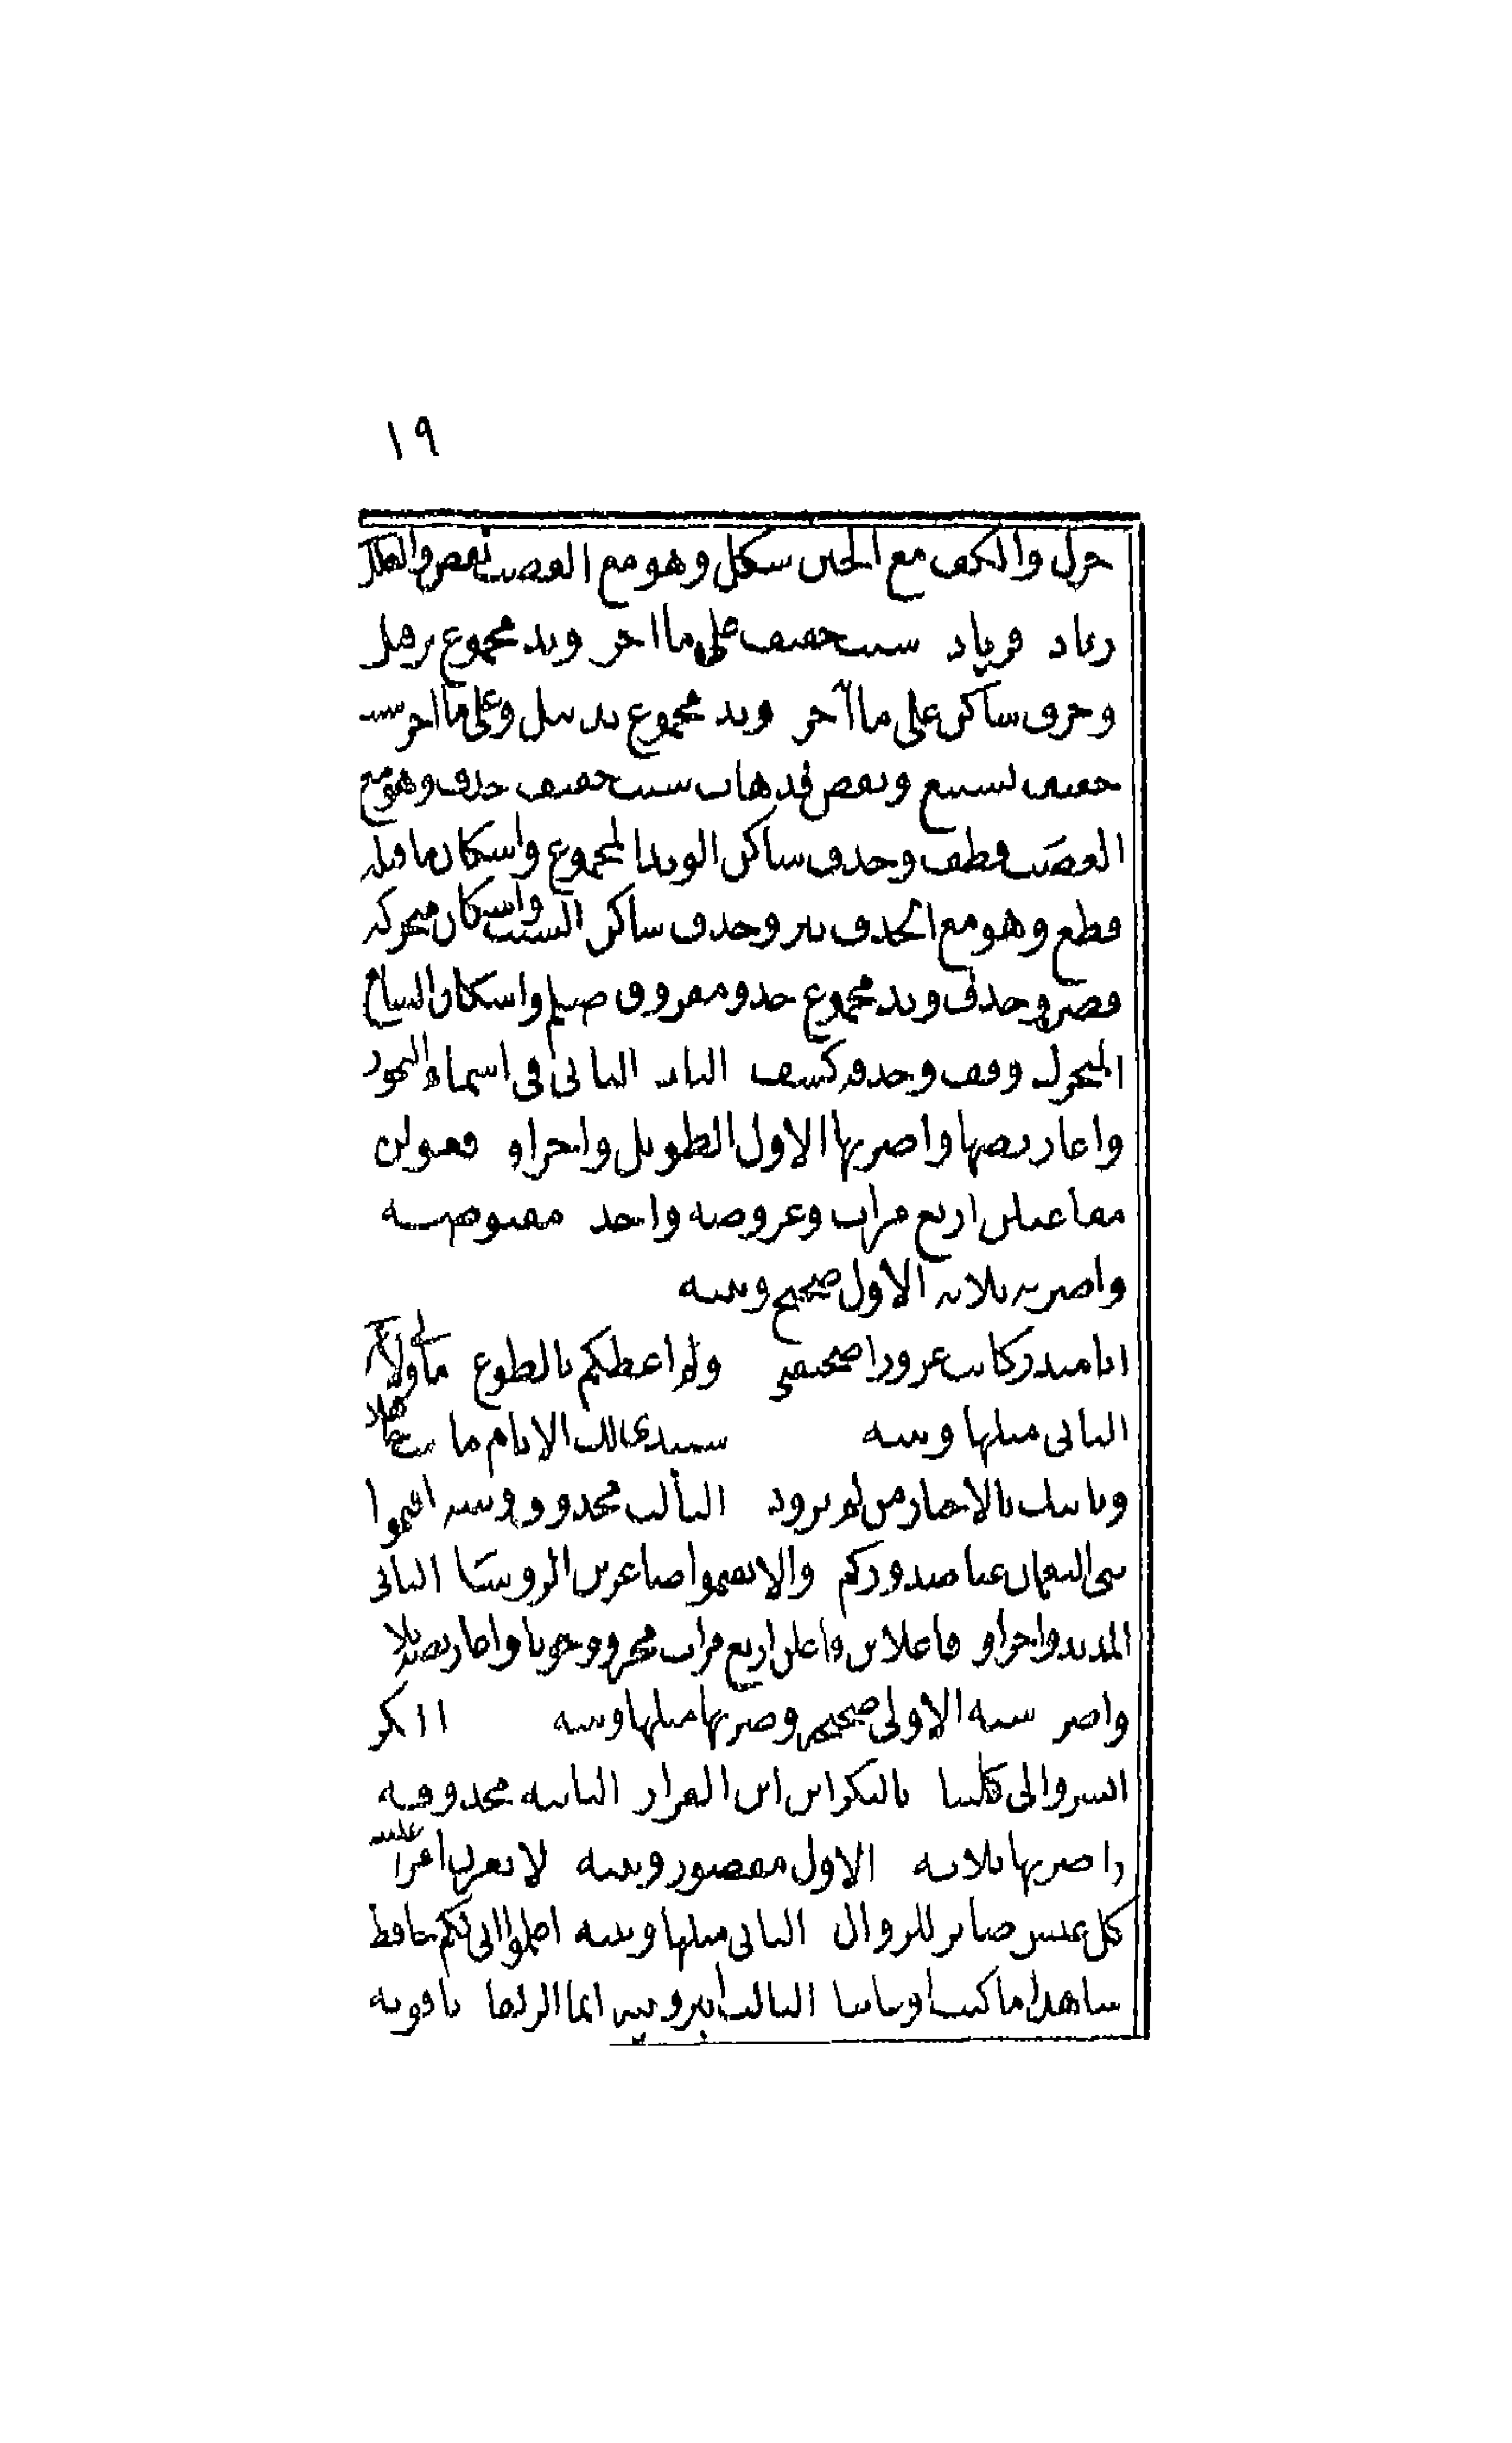 ١٩
خزل والكف مع الخبن شكل وهو مع العصب نقص والعلل
زياد فزياد سبب خفيف على ما اخر وتد مجموع ترفيل
وحرف ساكن على ما اخر وتد مجموع تذييل وعلى ما اخر سبب
خفيف تسبيع ونقص فذهاب سبب خفيف حذف وهو مع
العصب قطف وحذف ساكن الوتد المجموع واسكان ما قبله
قطع وهو مع الحذف بتر وحذف ساكن السبب واسكان متحركه
قصر وحذف وتد مجموع حذ ومفروق صلم واسكان السابع
المتحرك وقف وحذفه كسف الباب الثانى فى اسماء البحور
واعاريضها واضربها الاول الطويل واجزاو فعولن
مفاعيلن اربع مرات وعروضه واحد مقبوضه
واضربه ثلاثه الاول صحيح وبيته
ابا منذر كانت غرورا صحيفتي ولم اعطكم بالطوع مالى ولا
الثانى مثلها وبيته ستبدى لك الايام ما كنت جاهلا
وياتيك بالاخبار من لم تزود الثالث محذوف وبيته اقيموا
بنى النعمان عنا صدوركم والا تقيموا صاغرين الروسا الثانى
المديد واجزاو فاعلاتن فاعلن اربع مرات مجزو وجوبا واعاريضه ثلا
واضر سته الاولى صحيحه وضربها مثلها وبيته ا ا بكر
انشروا لى كليبا يالبكر اين اين الفرار الثانيه محذوفه
واضربها ثلاثه الاول مقصور وبيته لا يغرن امرا عيشه
كل عيش صاير للزوال الثانى مثلها وبيته اعلموا انى لكم حافظ
شاهدا ما كنت او غايبا الثالث ابتر وبيته انما الزلفا ياقوته